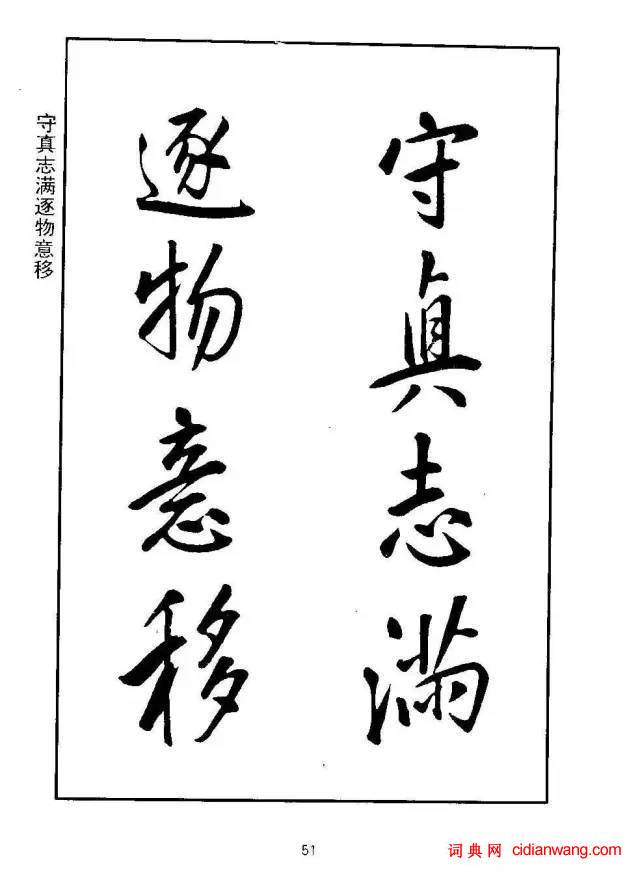 守真志满
逐物意移
守真志满逐物意移
51
词典网 cidianwang.com